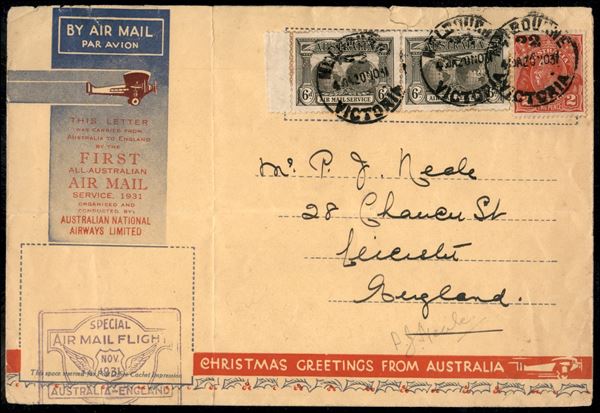 BY AIR MAIL
PAR AVION
THIS LETTER
WAS CARRIED FROM
AUSTRALIA TO ENGLAND
BY THE
FIRST
ALL-AUSTRALIAN
AIR MAIL
SERVICE, 1931
ORGANISED AND
CONDUCTED BY:
AUSTRALIAN NATIONAL
AIRWAYS LIMITED
AUSTRALIA
6d AIR MAIL SERVICE 6d
AUSTRALIA
6d AIR MAIL SERVICE
2
MELBOURNE
VICTORIA
MELBOURNE
VICTORIA
VICTORIA
Mr P. J. Neale
28 Chaucer St
Leicester
England.
P J Neale
SPECIAL
AIR MAIL FLIGHT
NOV.
1931
AUSTRALIA-ENGLAND
This space reserved for Cachet Impression
CHRISTMAS GREETINGS FROM AUSTRALIA